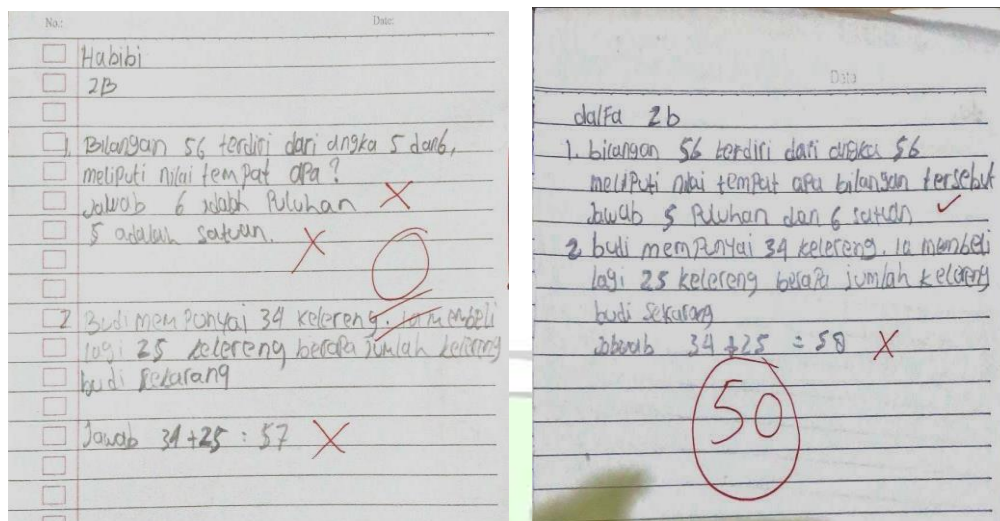 No.: Date:
Habibi
2B
1. Bilangan 56 terdiri dari angka 5 dan6,
meliputi nilai tempat apa?
Jawab 6 adalah Puluhan
5 adalah satuan.
0
2 Budi memPunyai 34 kelereng. ia membeli
lagi 25 kelereng beraPa jumlah kelereng
budi sekarang
Jawab 34+25 : 57
Data
dalFa 2b
1. bilangan 56 terdiri dari angka 56
meliPuti nilai temPat apa bilangan tersebut
Jawab 5 Puluhan dan 6 satuan
2 budi memPunyai 34 kelereng. ia membeli
lagi 25 kelereng beraPa jumlah kelereng
budi sekarang
34+25 = 58
50